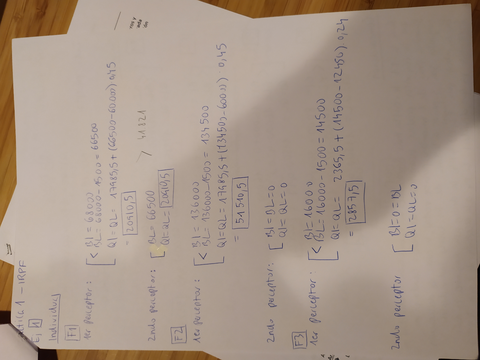 IRPF
Individual
F1
1er perceptor: BI = 68000
BL = 68000 - 1500 = 66500
QI = QL = 17985,5 + (66500 - 60000) 0,45
= 20910,5
2ndo perceptor: BL = 66500
QI = QL = 20910,5
F2
1er perceptor: BI = 136000
BL = 136000 - 1500 = 134500
QI = QL = 17985,5 + (134500 - 60000) 0,45
= 51510,5
2ndo perceptor: BI = BL = 0
QI = QL = 0
F3
1er perceptor: BI = 16000
BL = 16000 - 1500 = 14500
QI = QL = 2365,5 + (14500 - 12450) 0,24
= 2857,5
2ndo perceptor BI = 0 = BL
QI = QL = 0